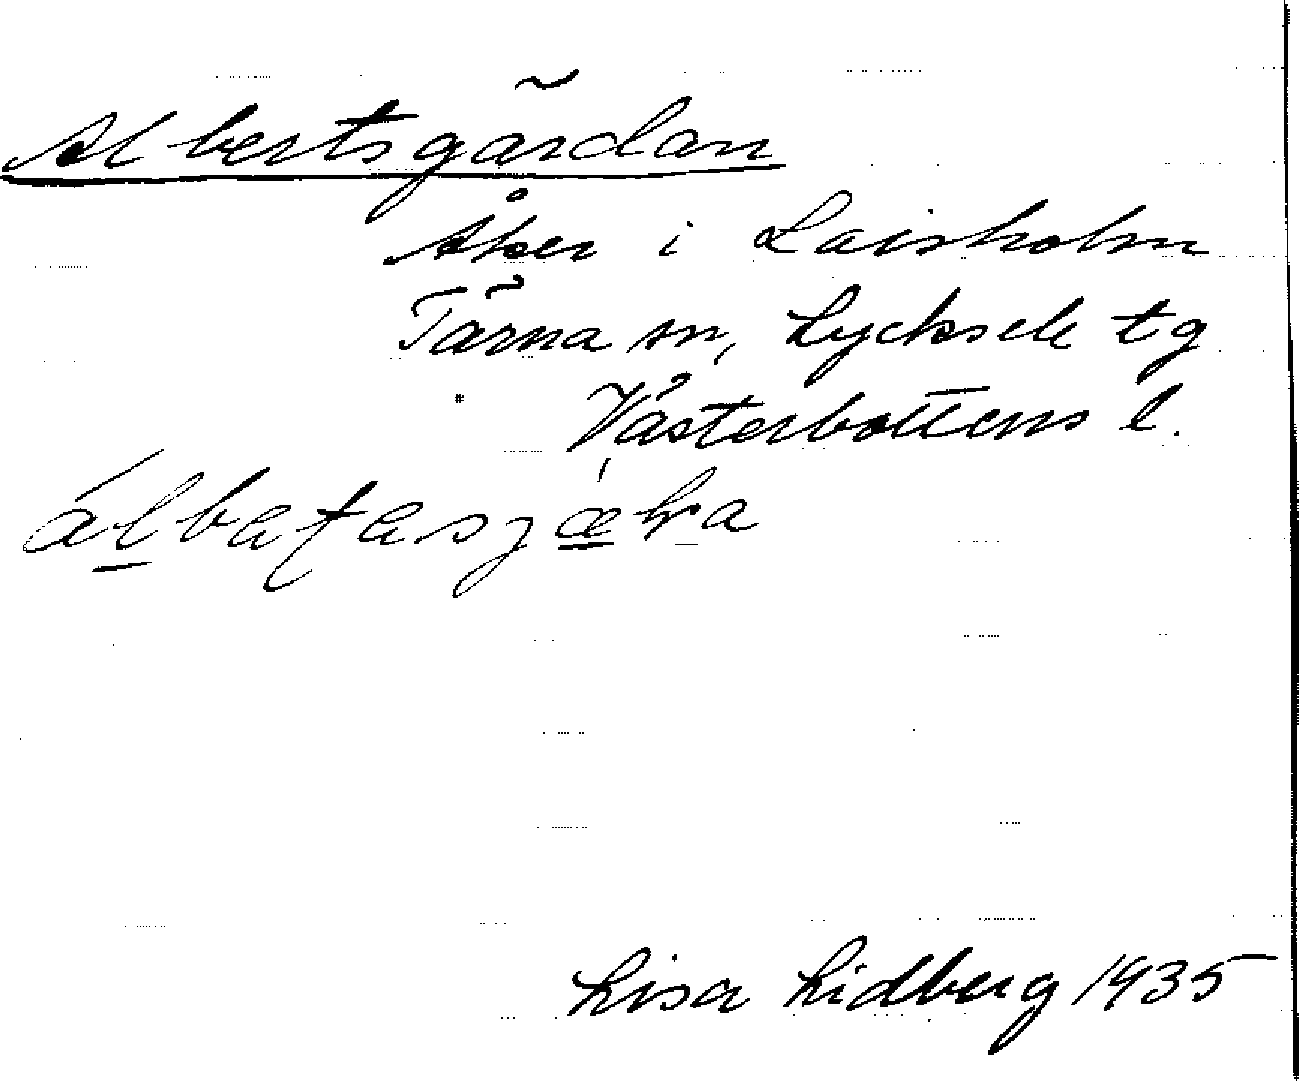 Albertsgärdan
Åker i Laisholm
Tärna sn, Lycksele tg
Västerbottens l.
Lisa Lidberg 1935